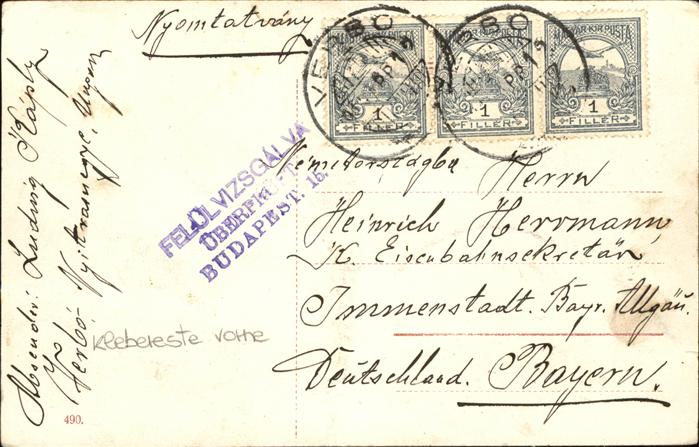 Nyomtatvány
VERBÓ
VERBÓ
MAGYAR KIR. POSTA
1
FILLER
MAGYAR KIR. POSTA
1
FILLER
MAGYAR KIR. POSTA
1
FILLER
FELÜLVIZSGÁLVA
BUDAPEST. 15.
Németországba
Herrn
Heinrich Herrmann,
K. Eisenbahnsekretär
Immenstadt. Bayr. Allgäu.
Deutschland. Bayern.
Absender: Ludwig
Verbó. Nyitramegye, Ungarn
Klebereste vorne
490.